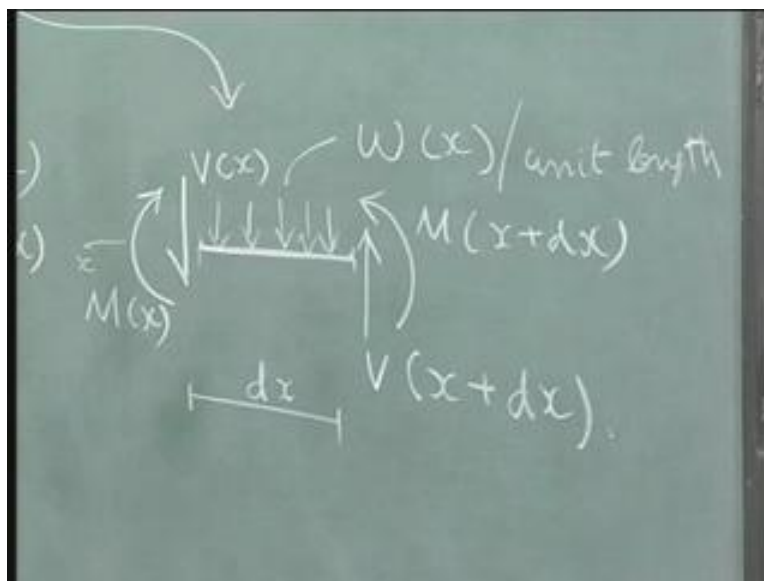 V(x) W(x)/unit length
M(x+dx)
M(x)
dx
V(x+dx).